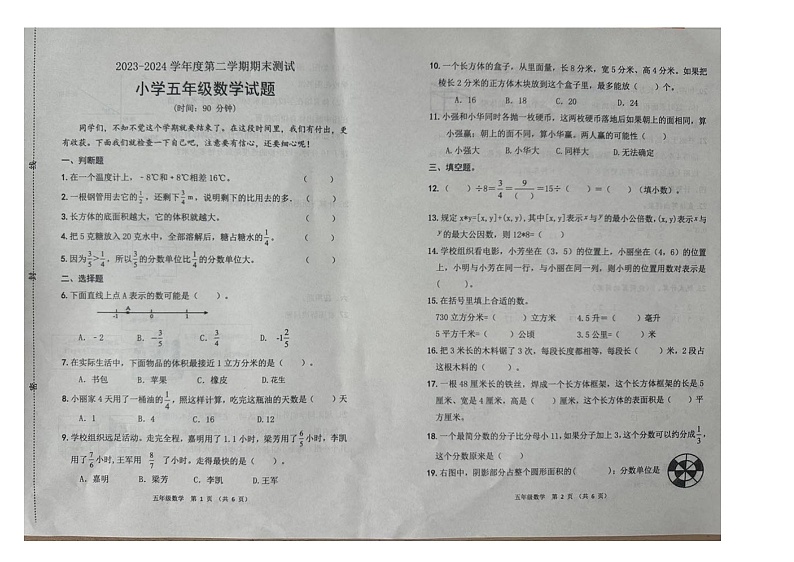 2023-2024 学年度第二学期期末测试
小学五年级数学试题
(时间: 90 分钟)
同学们，不知不觉这个学期就要结束了。在这段时间里，我们有付出，更
有收获。下面我们就检查一下自己吧，注意要有信心，还要细心呢！
一、判断题
1. 在一个温度计上，－8℃和＋8℃相差 16℃。 （ ）
2. 一根钢管用去它的1/4，还剩下3/4 m，说明剩下的比用去的多. （ ）
3. 长方体的底面积越大，它的体积就越大。 （ ）
4. 把 5 克糖放入 20 克水中，全部溶解后，糖占糖水的1/4。 （ ）
5. 因为3/5>1/4，所以3/5的分数单位比1/4的分数单位大。 （ ）
二、选择题
6. 下面直线上点 A 表示的数可能是（ ）。
A
-1 0 1
A. －2 B. -3/5 C. 3/4 D. -1 2/5
7. 在实际生活中，下面物品的体积最接近 1 立方分米的是（ ）。
A. 书包 B. 苹果 C. 橡皮 D.花生
8. 小丽家 4 天用了一桶油的1/4，照这样计算，吃完这瓶油的天数是（ ）天
A. 1 B. 4 C. 16 D.12
9. 学校组织远足活动。走完全程，嘉明用了 1.1 小时，梁芳用了6/5小时，李凯
用了7/6小时,王军用 8/7 了小时。走得最快的是（ ）。
A. 嘉明 B. 梁芳 C. 李凯 D.王军
五年级数学 第 1 页 （共 6 页）
线
封
密
10. 一个长方体的盒子，从里面量，长 8 分米，宽 5 分米、高 4 分米。如果把
棱长 2 分米的正方体木块放到这个盒子里，最多能放（ ）个。
A. 16 B. 18 C. 20 D. 24
11. 小强和小华同时各抛一枚硬币，这两枚硬币落地后如果朝上的面相同，算
小强赢；朝上的面不同，算小华赢。两人赢的可能性（ ）
A. 小强大 B. 小华大 C. 同样大 D. 无法确定
三、填空题。
12. （ ）÷8=3/4=9/（ ）=15÷（ ）=（ ）（填小数）。
13. 规定 x*y=[x,y]+(x,y),其中[x,y]表示x与y的最小公倍数,(x,y)表示x与
y的最大公因数，则 12*8=（ ）
14. 学校组织看电影，小芳坐在（3，5）的位置上，小丽坐在（4，6）的位置
上，小明与小芳在同一行，与小丽在同一列，则小明的位置用数对表示是
（ ）。
15. 在括号里填上合适的数。
730 立方分米=（ ）立方米 4.5 升=（ ）毫升
5 平方千米=（ ）公顷 3.5 公里=（ ）米
16. 把 3 米长的木料锯了 3 次，每段长度都相等，每段长（ ）米，2 段占
这根木料的（ ）。
17. 一根 48 厘米长的铁丝，焊成一个长方体框架，这个长方体框架的长是 5
厘米、宽是 4 厘米，高是（ ）厘米，这个长方体的表面积是（ ）平
方厘米。
18. 一个最简分数的分子比分母小 11,如果分子加上 3,这个分数可以约分成1/3,
这个分数原来是（ ）
19. 右图中，阴影部分占整个圆形面积的( )；分数单位是
五年级数学 第 2 页 （共 6 页）